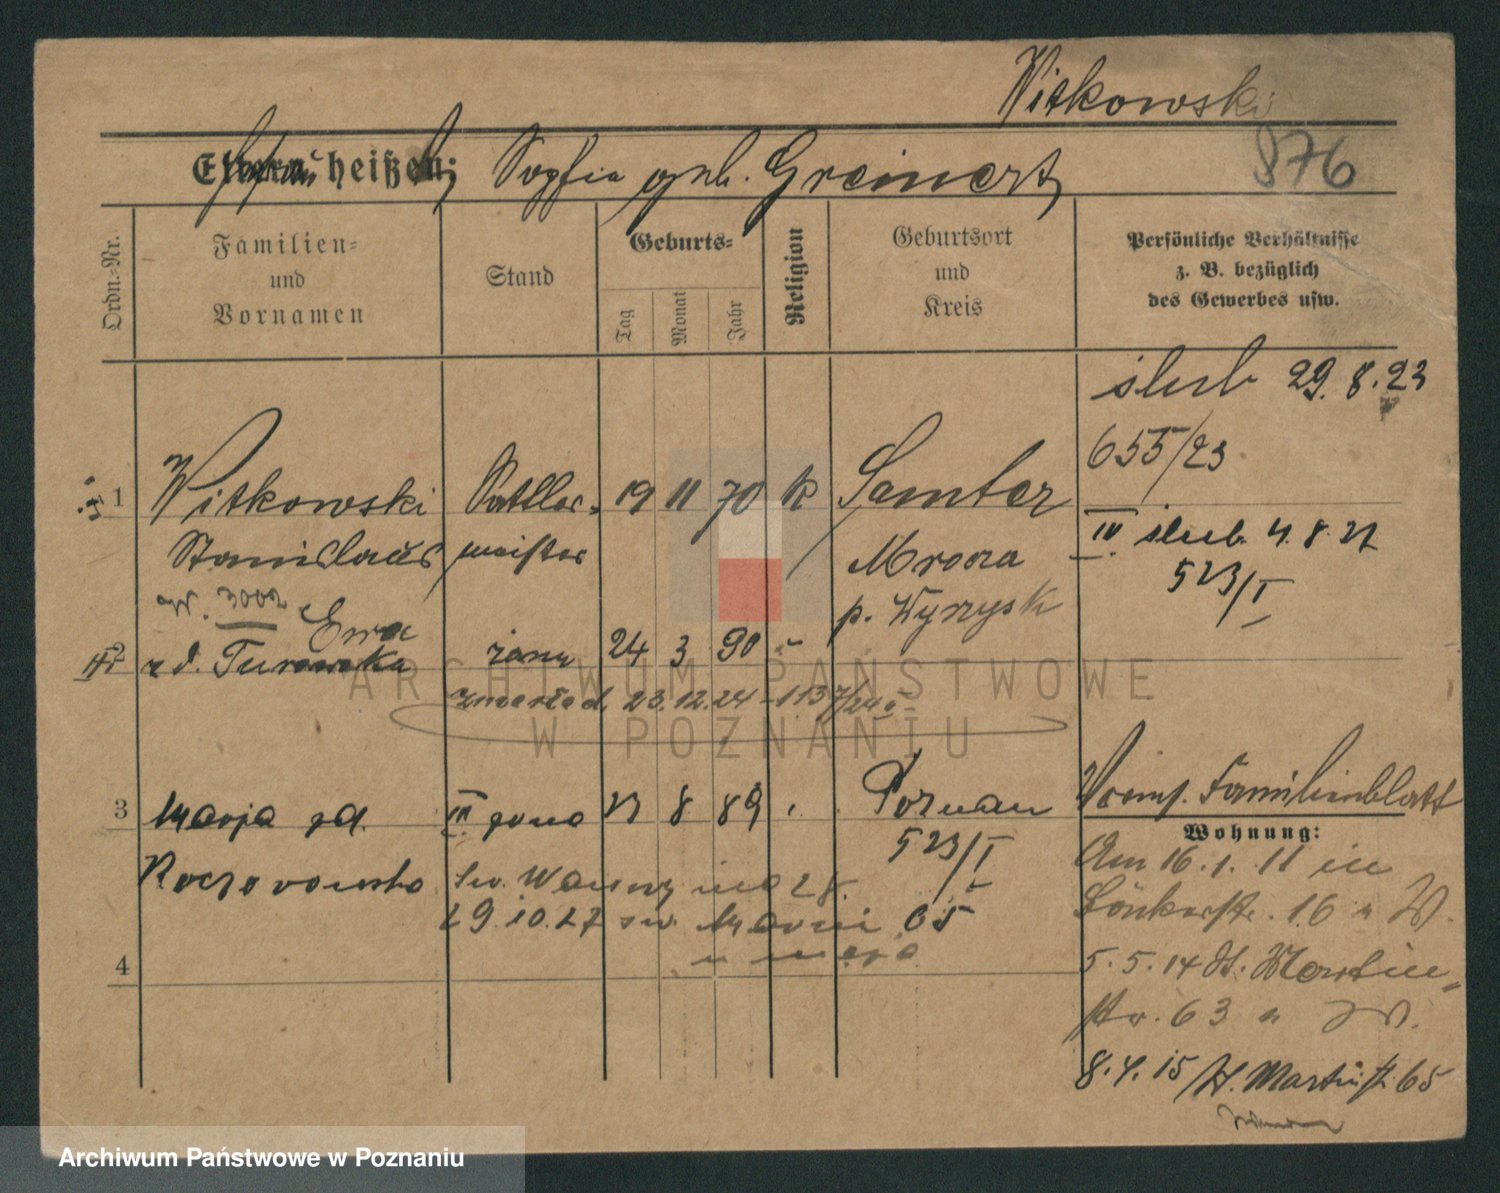 Witkowski
976
Eltern heißen: Sophia geb. Greinert
Ordn.-Nr.
Familien-
und
Vornamen
Stand
Geburts-
Tag
Monat
Jahr
Religion
Geburtsort
und
Kreis
Persönliche Verhältnisse
z. B. bezüglich
des Gewerbes usw.
ślub 29.8.23
655/23
1 Witkowski Sattler- 19 11 70 k Samter
Stanislaus meister Mrocza
p. Wyrzysk
IV ślub 4.8.27
523/I
W. 3002
Ewa
2 zd. Turowska żona 24 3 90
zmarła d. 23.12.24 - 1137/24
3 Marja zd. III żona 8 89 Poznan
523/I
Roczo
29.10.27 św. Marcin 65
u męża
4
Familienblatt
Wohnung:
Am 16.1.11 in
16 n W.
5.5.14 St. Martin-
str. 63 n W.
8.4.15 St. Martinst. 65
ARCHIWUM PAŃSTWOWE
W POZNANIU
Archiwum Państwowe w Poznaniu